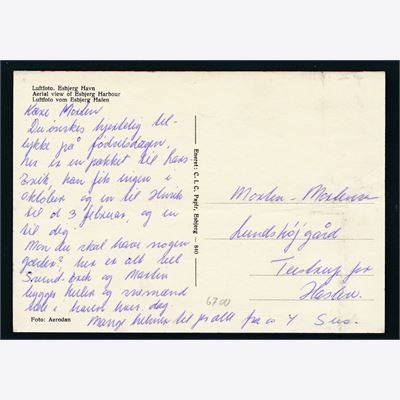 Luftfoto. Esbjerg Havn
Aerial view of Esbjerg Harbour
Luftfoto vom Esbjerg Hafen
Kære Morten
Du ønskes hjertelig til-
lykke på fødselsdagen,
her er en pakket til Lars
Erik, han fik ingen i
oktober og en til Henrik
til d 3 februar, og en
til dig.
Mon du skal have nogen
gæster? her er alt vel
Svend-Erik og Martin
bygger huler og snemænd
ude i haven hver dag.
Mange hilsner til jer alle fra os 4 Sus.
Foto: Aerodan
Eneret: C.L.C. Papir, Esbjerg 810
6700
Morten Mortensen
Lundshøjgård
Terstrup pr
Haslev.